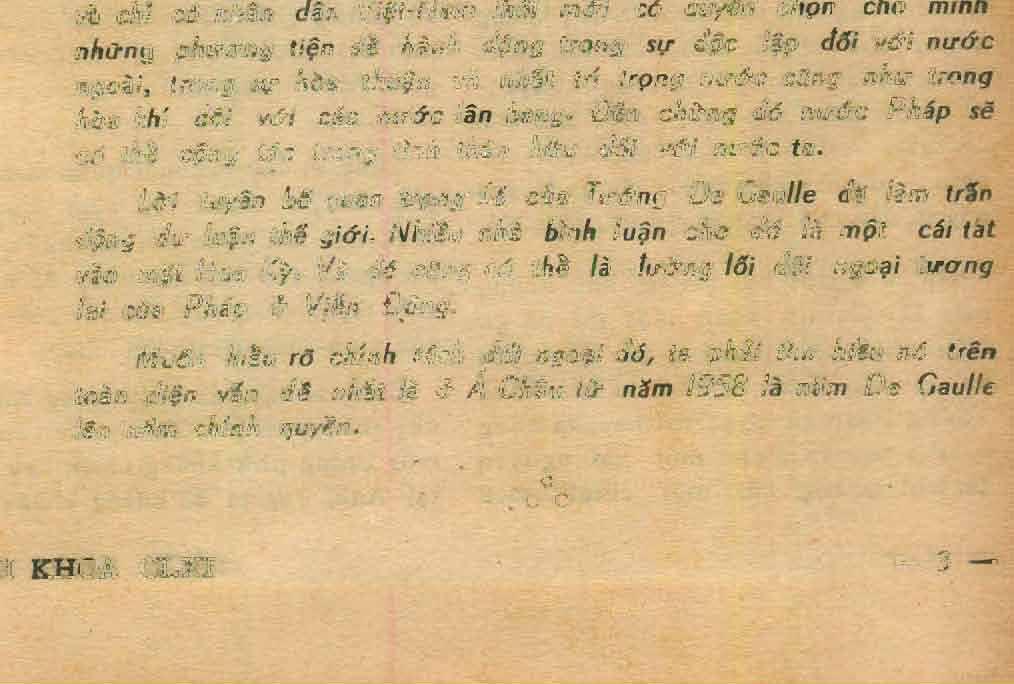 và chỉ có nhân dân Việt-Nam thôi mới có quyền chọn cho mình
những phương tiện để hành động trong sự độc lập đối với nước
ngoài, trong sự hòa thuận và nhất trí trong nước cũng như trong
hòa khí đối với các nước lân bang. Đến chừng đó nước Pháp sẽ
có thể cộng tác trong tình thân hữu đối với nước ta.
Lời tuyên bố quan trọng đó của Tướng De Gaulle đã làm trấn
động dư luận thế giới. Nhiều nhà bình luận cho đó là một cái tát
vào mặt Hoa Kỳ. Và đó cũng có thể là đường lối đối ngoại tương
lai của Pháp ở Viễn Đông.
Muốn hiểu rõ chính sách đối ngoại đó, ta phải tìm hiểu nó trên
toàn diện vấn đề nhất là ở Á Châu từ năm 1958 là năm De Gaulle
lên nắm chính quyền.
KHOA 3 —